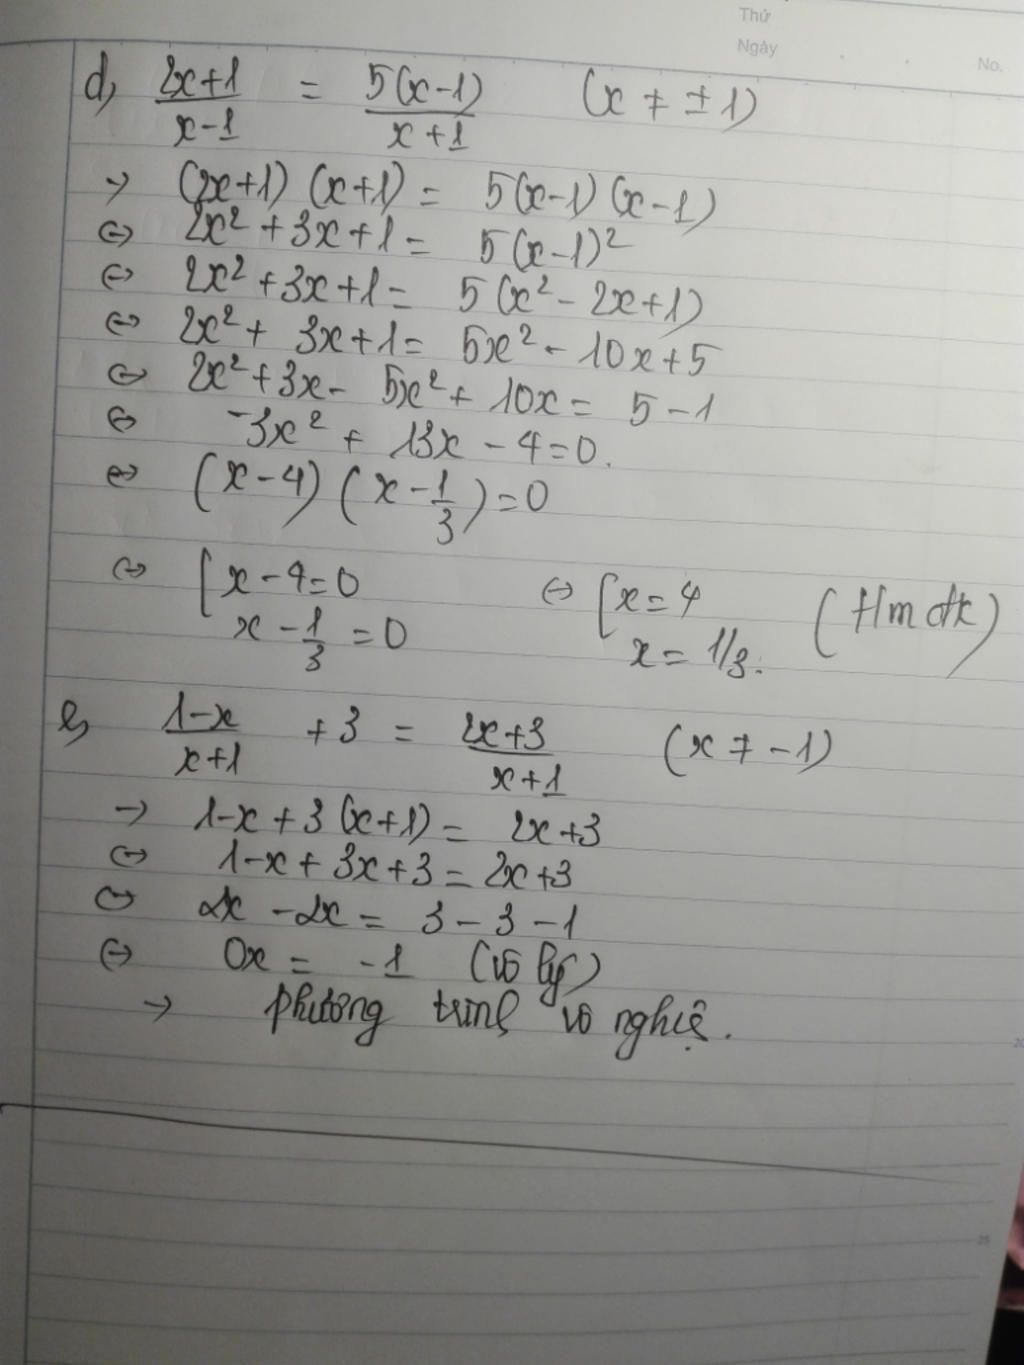 Thứ
Ngày
No.
d, (2x+1)/(x-1) = 5(x-1)/(x+1) (x ≠ ±1)
→ (2x+1) (x+1) = 5(x-1) (x-1)
⇔ 2x² + 3x + 1 = 5(x-1)²
⇔ 2x² + 3x + 1 = 5(x² - 2x + 1)
⇔ 2x² + 3x + 1 = 5x² - 10x + 5
⇔ 2x² + 3x - 5x² + 10x = 5 - 1
⇔ -3x² + 13x - 4 = 0.
⇔ (x - 4) (x - 1/3) = 0
⇔ [x - 4 = 0 ⇔ [x = 4 (tm đk)
x - 1/3 = 0 x = 1/3.
e, (1-x)/(x+1) + 3 = (2x+3)/(x+1) (x ≠ -1)
→ 1-x + 3(x+1) = 2x+3
⇔ 1-x + 3x + 3 = 2x + 3
⇔ 2x - 2x = 3 - 3 - 1
⇔ 0x = -1 (vô lý)
→ phương trình vô nghiệ.
20
25